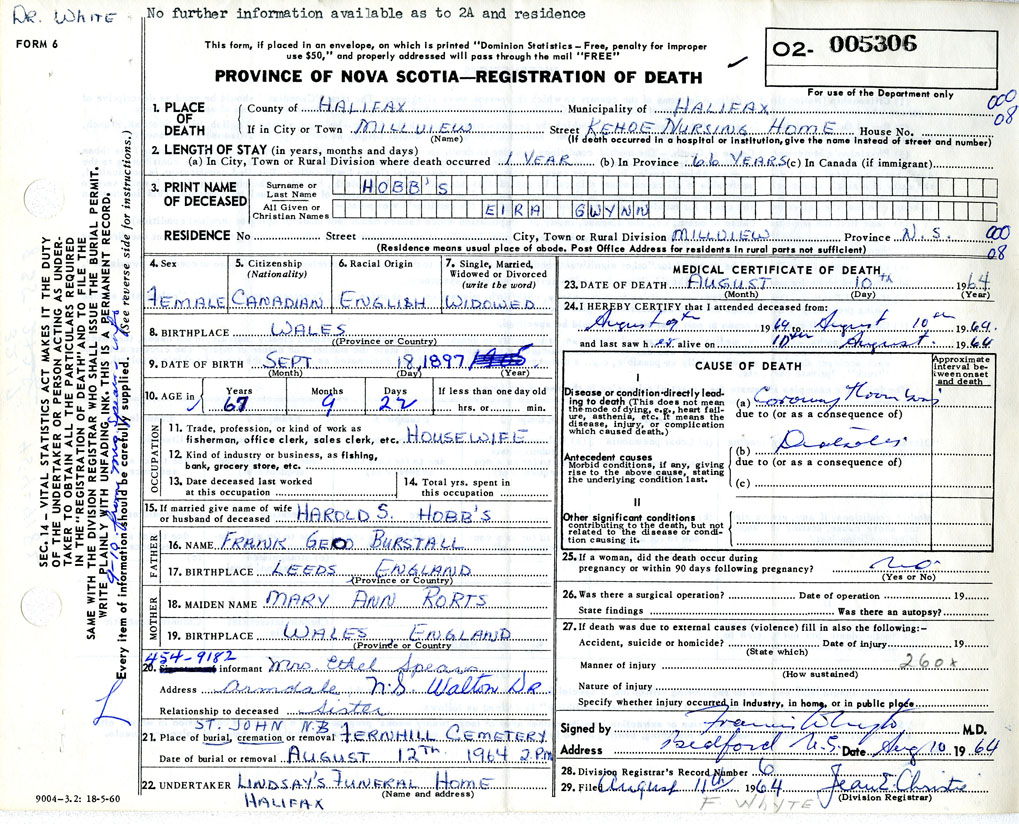 DR. WHITE
No further information available as to 2A and residence
FORM 6
This form, if placed in an envelope, on which is printed "Dominion Statistics – Free, penalty for improper
use $50," and properly addressed will pass through the mail "FREE"
PROVINCE OF NOVA SCOTIA—REGISTRATION OF DEATH
O2- 005306
For use of the Department only
000
08
1. PLACE OF DEATH
County of HALIFAX Municipality of HALIFAX
If in City or Town MILLVIEW Street KEHOE NURSING HOME House No.
(Name) (If death occurred in a hospital or institution, give the name instead of street and number)
2. LENGTH OF STAY (in years, months and days)
(a) In City, Town or Rural Division where death occurred 1 YEAR (b) In Province 66 YEARS (c) In Canada (if immigrant)
3. PRINT NAME OF DECEASED
Surname or Last Name HOBB'S
All Given or Christian Names EIRA GWYNN
RESIDENCE No Street City, Town or Rural Division MILLVIEW Province N.S.
(Residence means usual place of abode. Post Office Address for residents in rural parts not sufficient)
000
08
4. Sex FEMALE
5. Citizenship (Nationality) CANADIAN
6. Racial Origin ENGLISH
7. Single, Married, Widowed or Divorced (write the word) WIDOWED
8. BIRTHPLACE WALES
(Province or Country)
9. DATE OF BIRTH SEPT 18, 1897
(Month) (Day) (Year)
10. AGE in Years Months Days If less than one day old
67 9 22 hrs. or min.
OCCUPATION
11. Trade, profession, or kind of work as
fisherman, office clerk, sales clerk, etc. HOUSEWIFE
12. Kind of industry or business, as fishing,
bank, grocery store, etc.
13. Date deceased last worked
at this occupation
14. Total yrs. spent in
this occupation
15. If married give name of wife
or husband of deceased HAROLD S. HOBB'S
FATHER
16. NAME FRANK GEO BURSTALL
17. BIRTHPLACE LEEDS ENGLAND
(Province or Country)
MOTHER
18. MAIDEN NAME MARY ANN RORTS
19. BIRTHPLACE WALES, ENGLAND
(Province or Country)
454-9182
20. informant Mrs Ethel Spears
Address Armdale N.S. Walton DR
Relationship to deceased Sister
ST. JOHN N.B
21. Place of burial, cremation or removal FERNHILL CEMETERY
Date of burial or removal AUGUST 12TH 1964 2 PM
22. UNDERTAKER LINDSAY'S FUNERAL HOME
(Name and address)
HALIFAX
9004-3.2: 18-5-60
MEDICAL CERTIFICATE OF DEATH
23. DATE OF DEATH AUGUST 10th 1964
(Month) (Day) (Year)
24. I HEREBY CERTIFY that I attended deceased from:
August 9th 1964 to August 10th 1964.
and last saw her alive on 10th August. 1964
CAUSE OF DEATH
Approximate interval between onset and death
I
Disease or condition directly leading to death (This does not mean
the mode of dying, e.g., heart failure, asthenia, etc. It means the
disease, injury, or complication
which caused death.)
(a) Coronary Thrombosis
due to (or as a consequence of)
Antecedent causes
Morbid conditions, if any, giving
rise to the above cause, stating
the underlying condition last.
(b) Diabetes
due to (or as a consequence of)
(c)
II
Other significant conditions
contributing to the death, but not
related to the disease or condition causing it.
25. If a woman, did the death occur during
pregnancy or within 90 days following pregnancy? no
(Yes or No)
26. Was there a surgical operation? Date of operation 19
State findings Was there an autopsy?
27. If death was due to external causes (violence) fill in also the following:–
Accident, suicide or homicide? Date of injury 19
(State which)
Manner of injury 260x
(How sustained)
Nature of injury
Specify whether injury occurred in industry, in home, or in public place
Signed by Francis Whyte M.D.
Address Bedford N.S. Date Aug 10 1964
28. Division Registrar's Record Number 6
29. Filed August 11th 1964 Jean E Christie
(Division Registrar)
F WHYTE
SEC. 14 – VITAL STATISTICS ACT MAKES IT THE DUTY
OF THE UNDERTAKER OR PERSON ACTING AS UNDERTAKER TO OBTAIN ALL THE PARTICULARS REQUIRED
IN THE "REGISTRATION OF DEATH" AND TO FILE THE
SAME WITH THE DIVISION REGISTRAR WHO SHALL ISSUE THE BURIAL PERMIT.
WRITE PLAINLY WITH UNFADING INK. THIS IS A PERMANENT RECORD.
Every item of information should be carefully supplied. (See reverse side for instructions.)